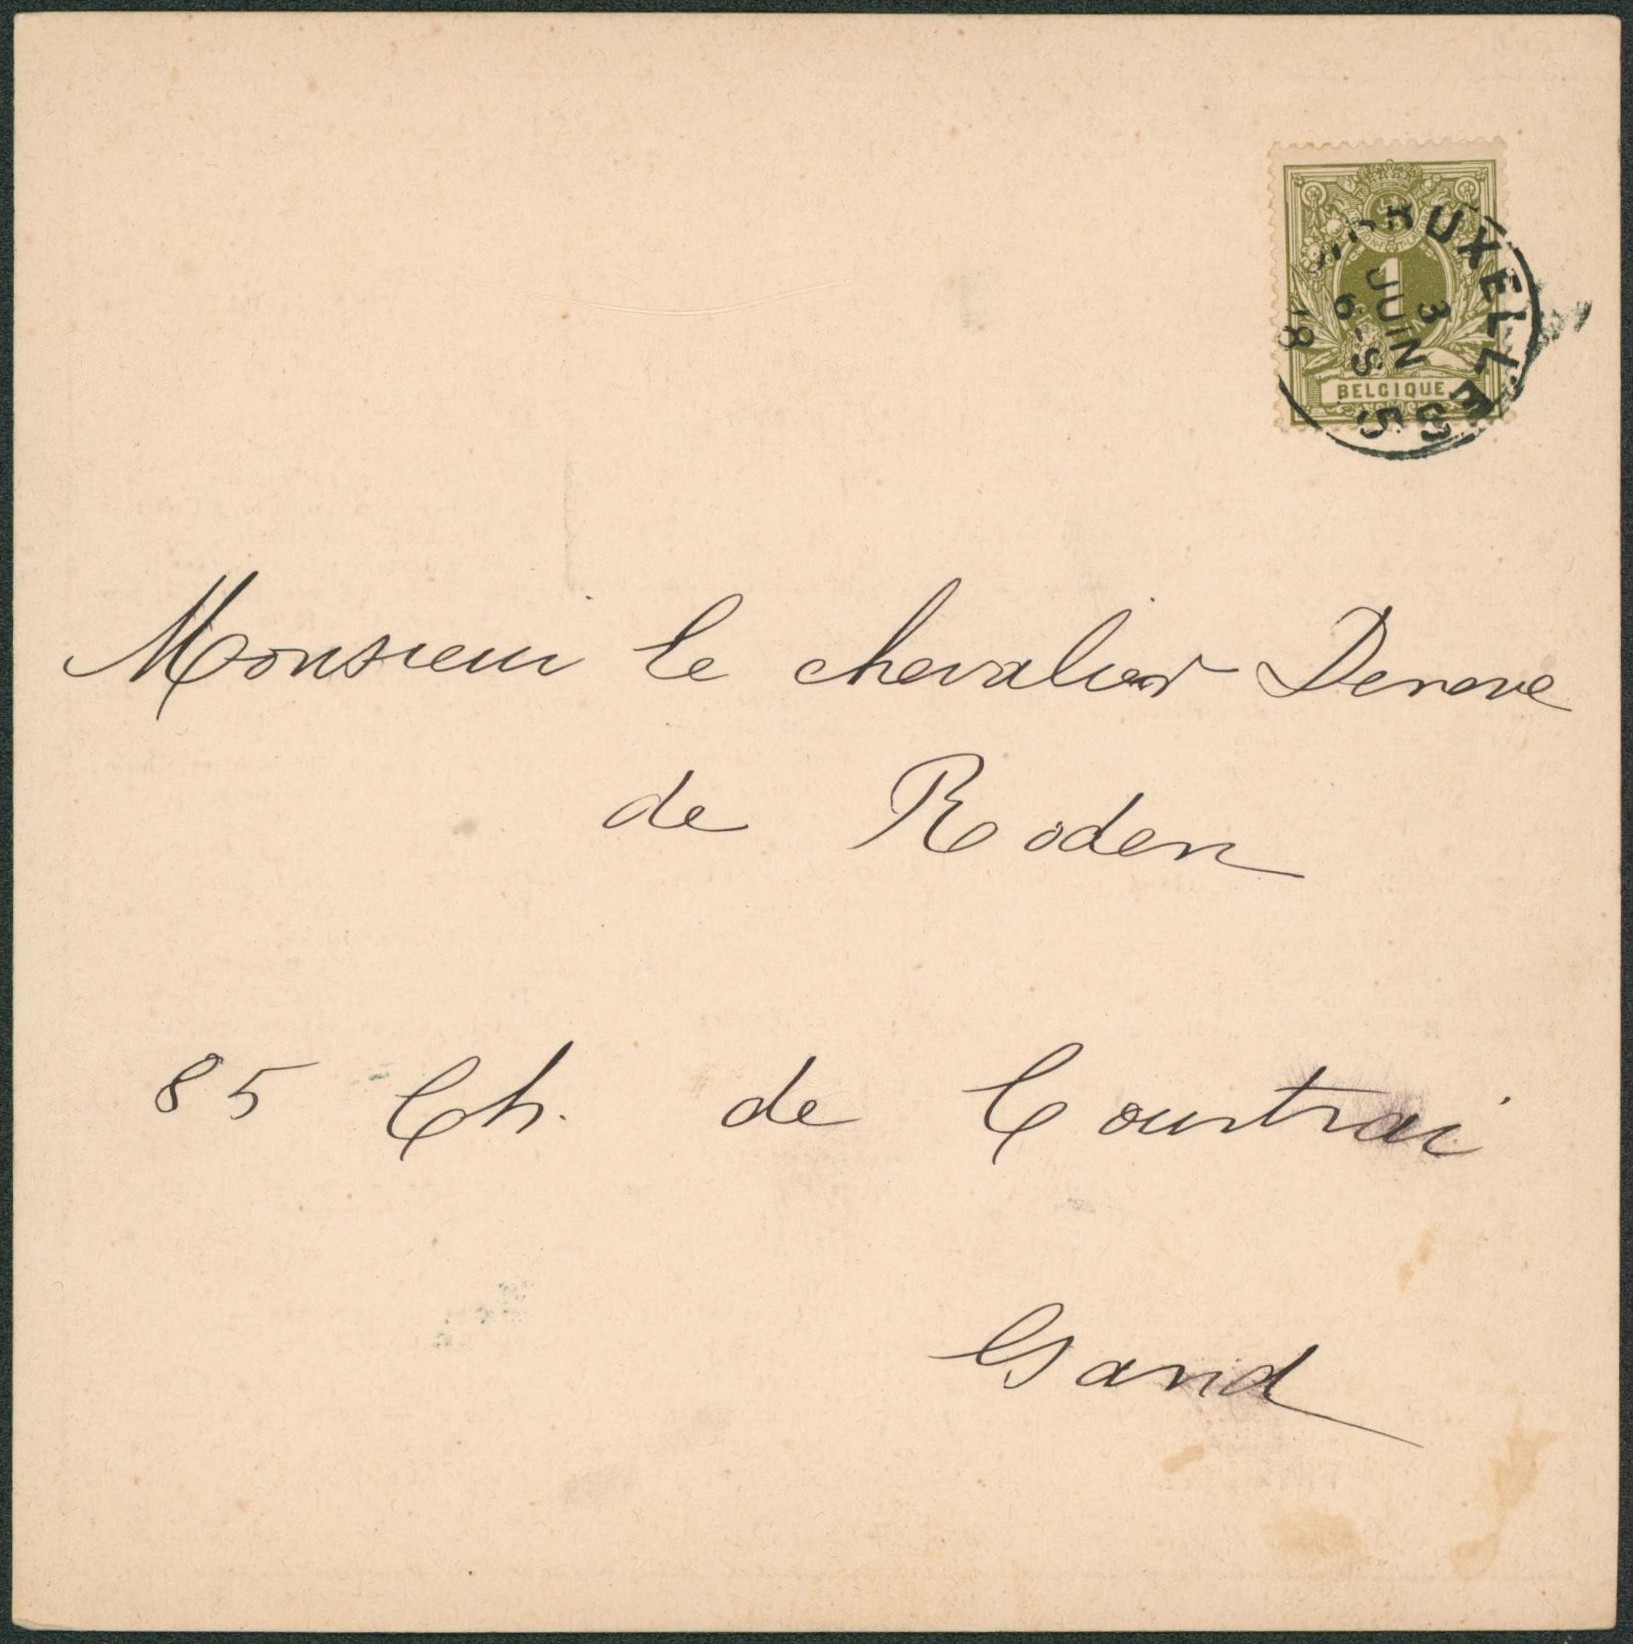 1
BELGIQUE
BRUXELLES
3
JUIN
6-S
18 5
Monsieur le chevalier Deneve
de Roden
85 Ch. de Courtrai
Gand